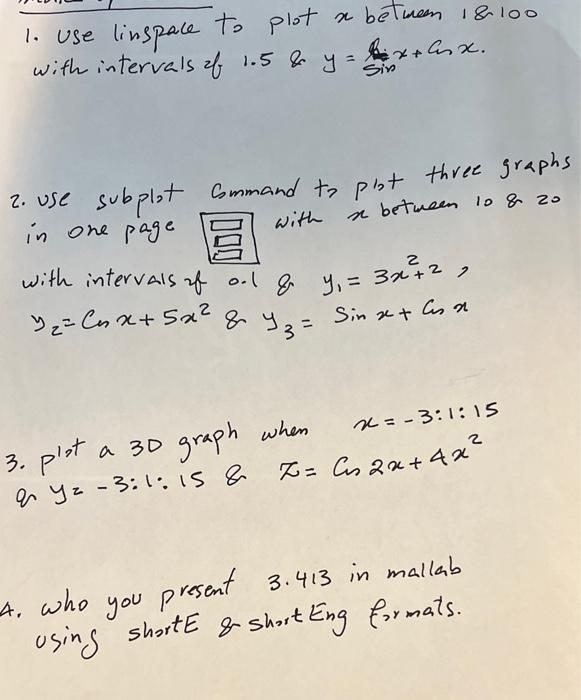 1. Use linspace to plot x between 1 & 100
with intervals of 1.5 & y = sin x + Cos x.
2. use subplot Command to plot three graphs
in one page with x between 10 & 20
with intervals of 0.1 & y₁ = 3x² + 2 ,
y₂ = Cos x + 5x² & y₃ = Sin x + Cos x
3. plot a 3D graph when x = -3:1:15
& y = -3:1:15 & Z = Cos 2x + 4x²
4. who you present 3.413 in matlab
using shortE & shortEng formats.